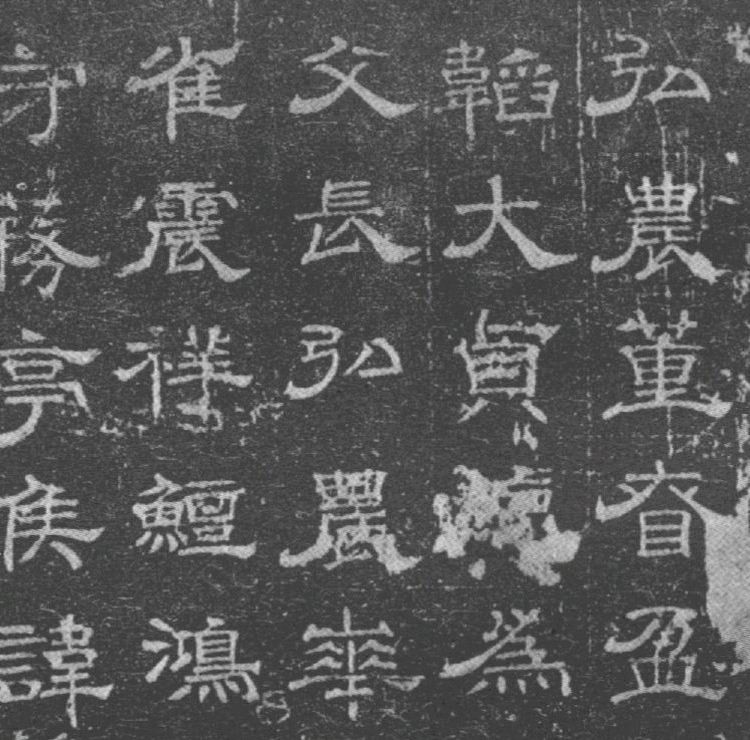 弘農董眘盈
韜大貞為
父長弘農華
雀震祥鱣鴻
守蓩亭侯諱